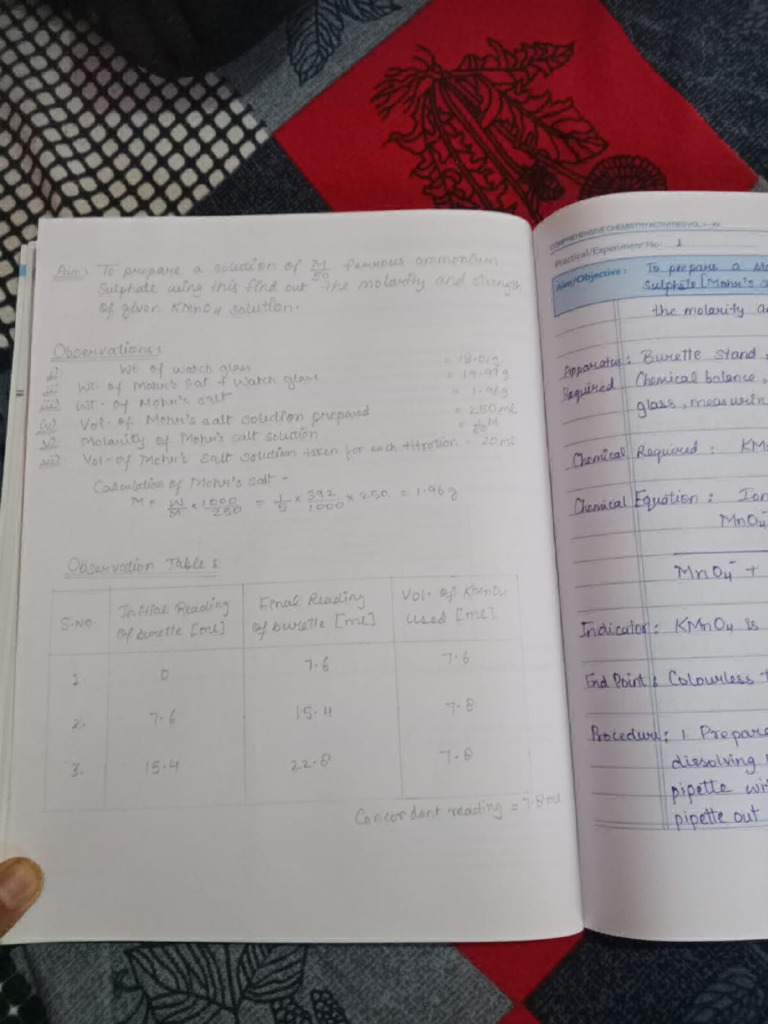 Aim:) To prepare a solution of M/50 ferrous ammonium
Sulphate using this find out the molarity and strength
of given KMnO4 solution.
Observations:
i) Wt of watch glass = 18.01g
ii) Wt of Mohr's salt + Watch glass = 19.97g
iii) Wt. of Mohr's salt = 1.96g
iv) Vol. of Mohr's salt solution prepared = 250ml
v) Molarity of Mohr's salt solution = M
Vol. of Mohr's salt solution taken for each titration = 20ml
Calculation of Mohr's salt -
M = W/M × 1000/250 = 1/5 × 392/1000 × 250 = 1.96g
Observation Table:
S.No. Initial Reading Of burette [ml] Final Reading Of burette [ml] Vol. of KMnO4 used [ml]
1. 0 7.6 7.6
2. 7.6 15.4 7.8
3. 15.4 22.8 7.8
Concordant reading = 7.8ml
COMPREHENSIVE CHEMISTRY ACTIVITIES VOL.
Practical/Experiment No. 1
Aim/Objective: To prepare a
Sulphate [Mohr's
the molarity
Apparatus Required: Burette stand,
Chemical balance,
glass,
Chemical Required:
Chemical Equation:
MnO4-
MnO4- +
Indicator: KMnO4 is
End Point: Colourless
Procedure: 1. Prepare
dissolving
pipette
pipette out